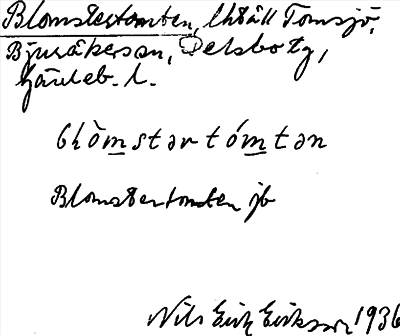 Blomstertomten, lht åll Tomsjö,
Bjuråkers sn, Delsbo tg,
Gävleb. l.
bḷòmstərtómtən
Blomstertomten jb
Nils Erik Eriksson 1936